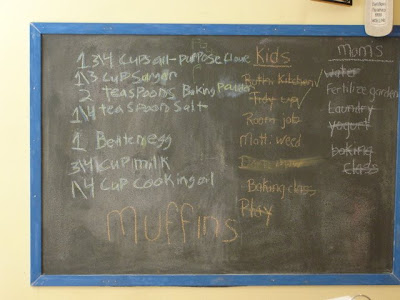 1 3/4 cups all-purpose flowe
1/3 cup Sugar
2 teaspoons Baking Pauder
1/4 teaspoon Salt
1 Betten egg
3/4 cup milk
1/4 cup cooking oil
muffins
Kids
Kitchen
Tidy up
Room job
Mott: weed
Baking class
Play
moms
water
Fertilize garden
Laundry
yogurt
baking
class